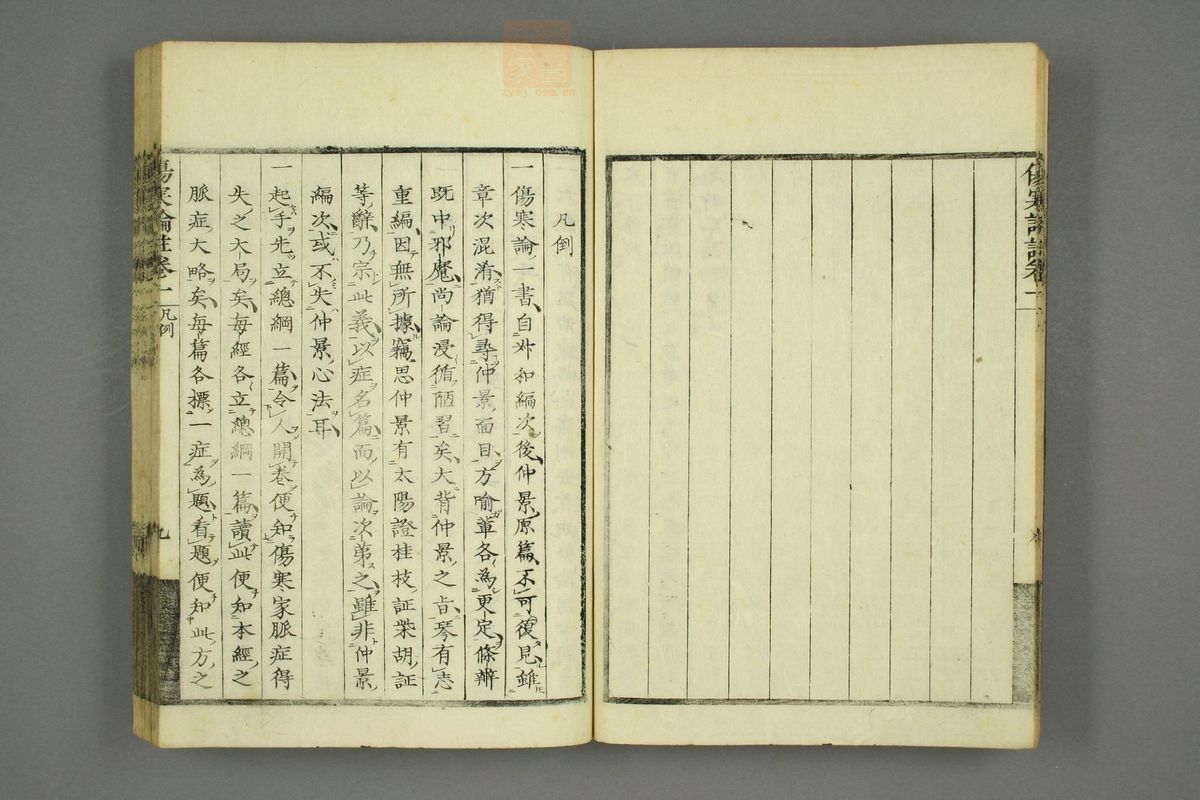 凡例
一傷寒論一書自尗和編次後仲景原篇不可復見雖
章次混淆猶得尋仲景面目方喻軰各為更定條辨
既中邪魔尚論浸循陋習矣大背仲景之旨琴有志
重編因無所據竊思仲景有太陽證桂枝証柴胡証
等辭乃宗此義以症名篇而以論次第之雖非仲景
編次或不失仲景心法耳
一起手先立總綱一篇令人開卷便知傷寒家脈症得
失之大局矣每經各立總綱一篇讀此便知本經之
脈症大略矣每篇各標一症為題看題便知此方之
傷寒論註卷一 凡例 九
zysj.com.cn